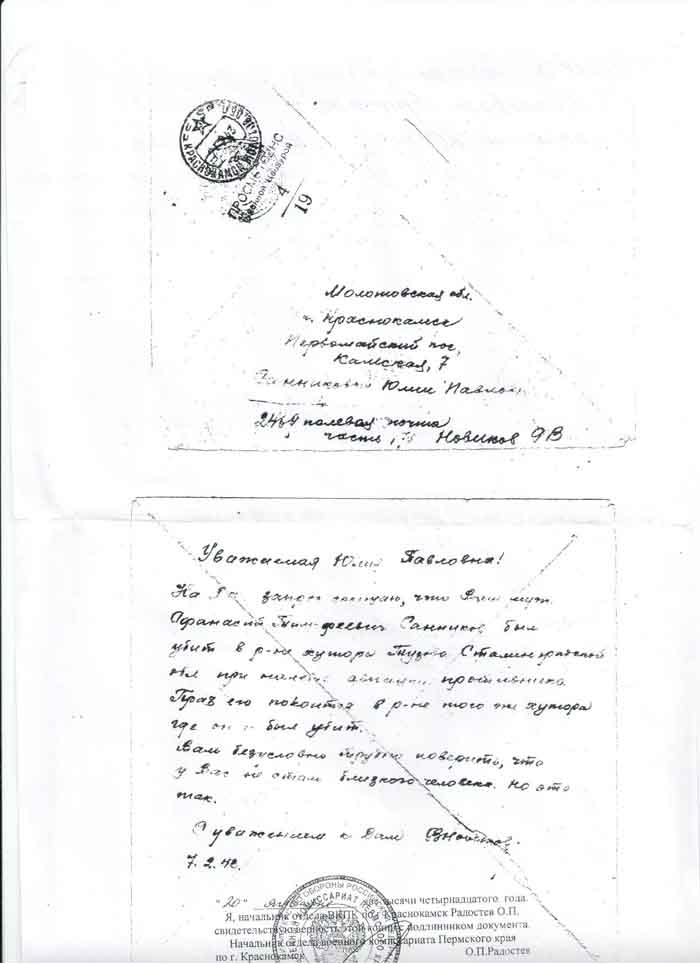 КРАСНОКАМСК МОЛ.
ПРОСМОТРЕНО
Военной Цензурой
4
19
Молотовская обл.
г. Краснокамск
Первомайский пос,
Камская, 7
Санниковой Юлии Павловне
2469 полевая почта
часть Новиков ЯВ
Уважаемая Юлия Павловна!
На Ва запрос сообщаю, что Ваш муж
Афанасий Тимофеевич Санников был
убит в р-не хутора Сталинградской
обл при налете авиации противника
Прах его покоится в р-не того же хутора
где он и был убит.
Вам безусловно трудно поверить, что
у Вас не стало близкого человека. Но это
так.
С уважением к Вам
7.2.42.
"20" две тысячи четырнадцатого года.
Я, начальник отдела ВКПК по г. Краснокамск Радостев О.П.
свидетельствую верность этой копии с подлинником документа.
Начальник отдела военного комиссариата Пермского края
по г. Краснокамск О.П.Радостев